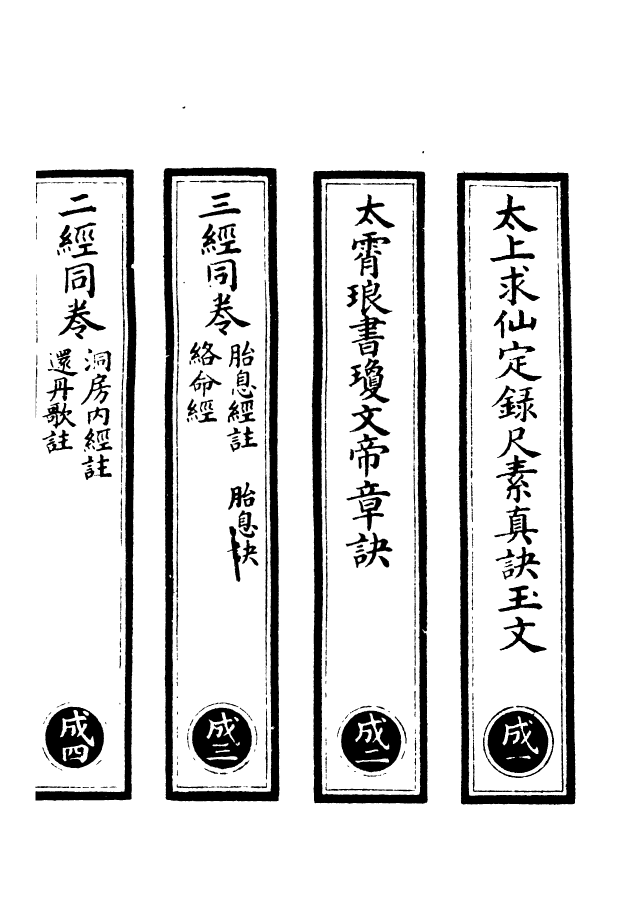 太上求仙定録尺素真訣玉文
成一
太霄琅書瓊文帝章訣
成二
三經同卷
胎息經註 胎息訣
絡命經
成三
二經同卷
洞房内經註
還丹歌註
成四